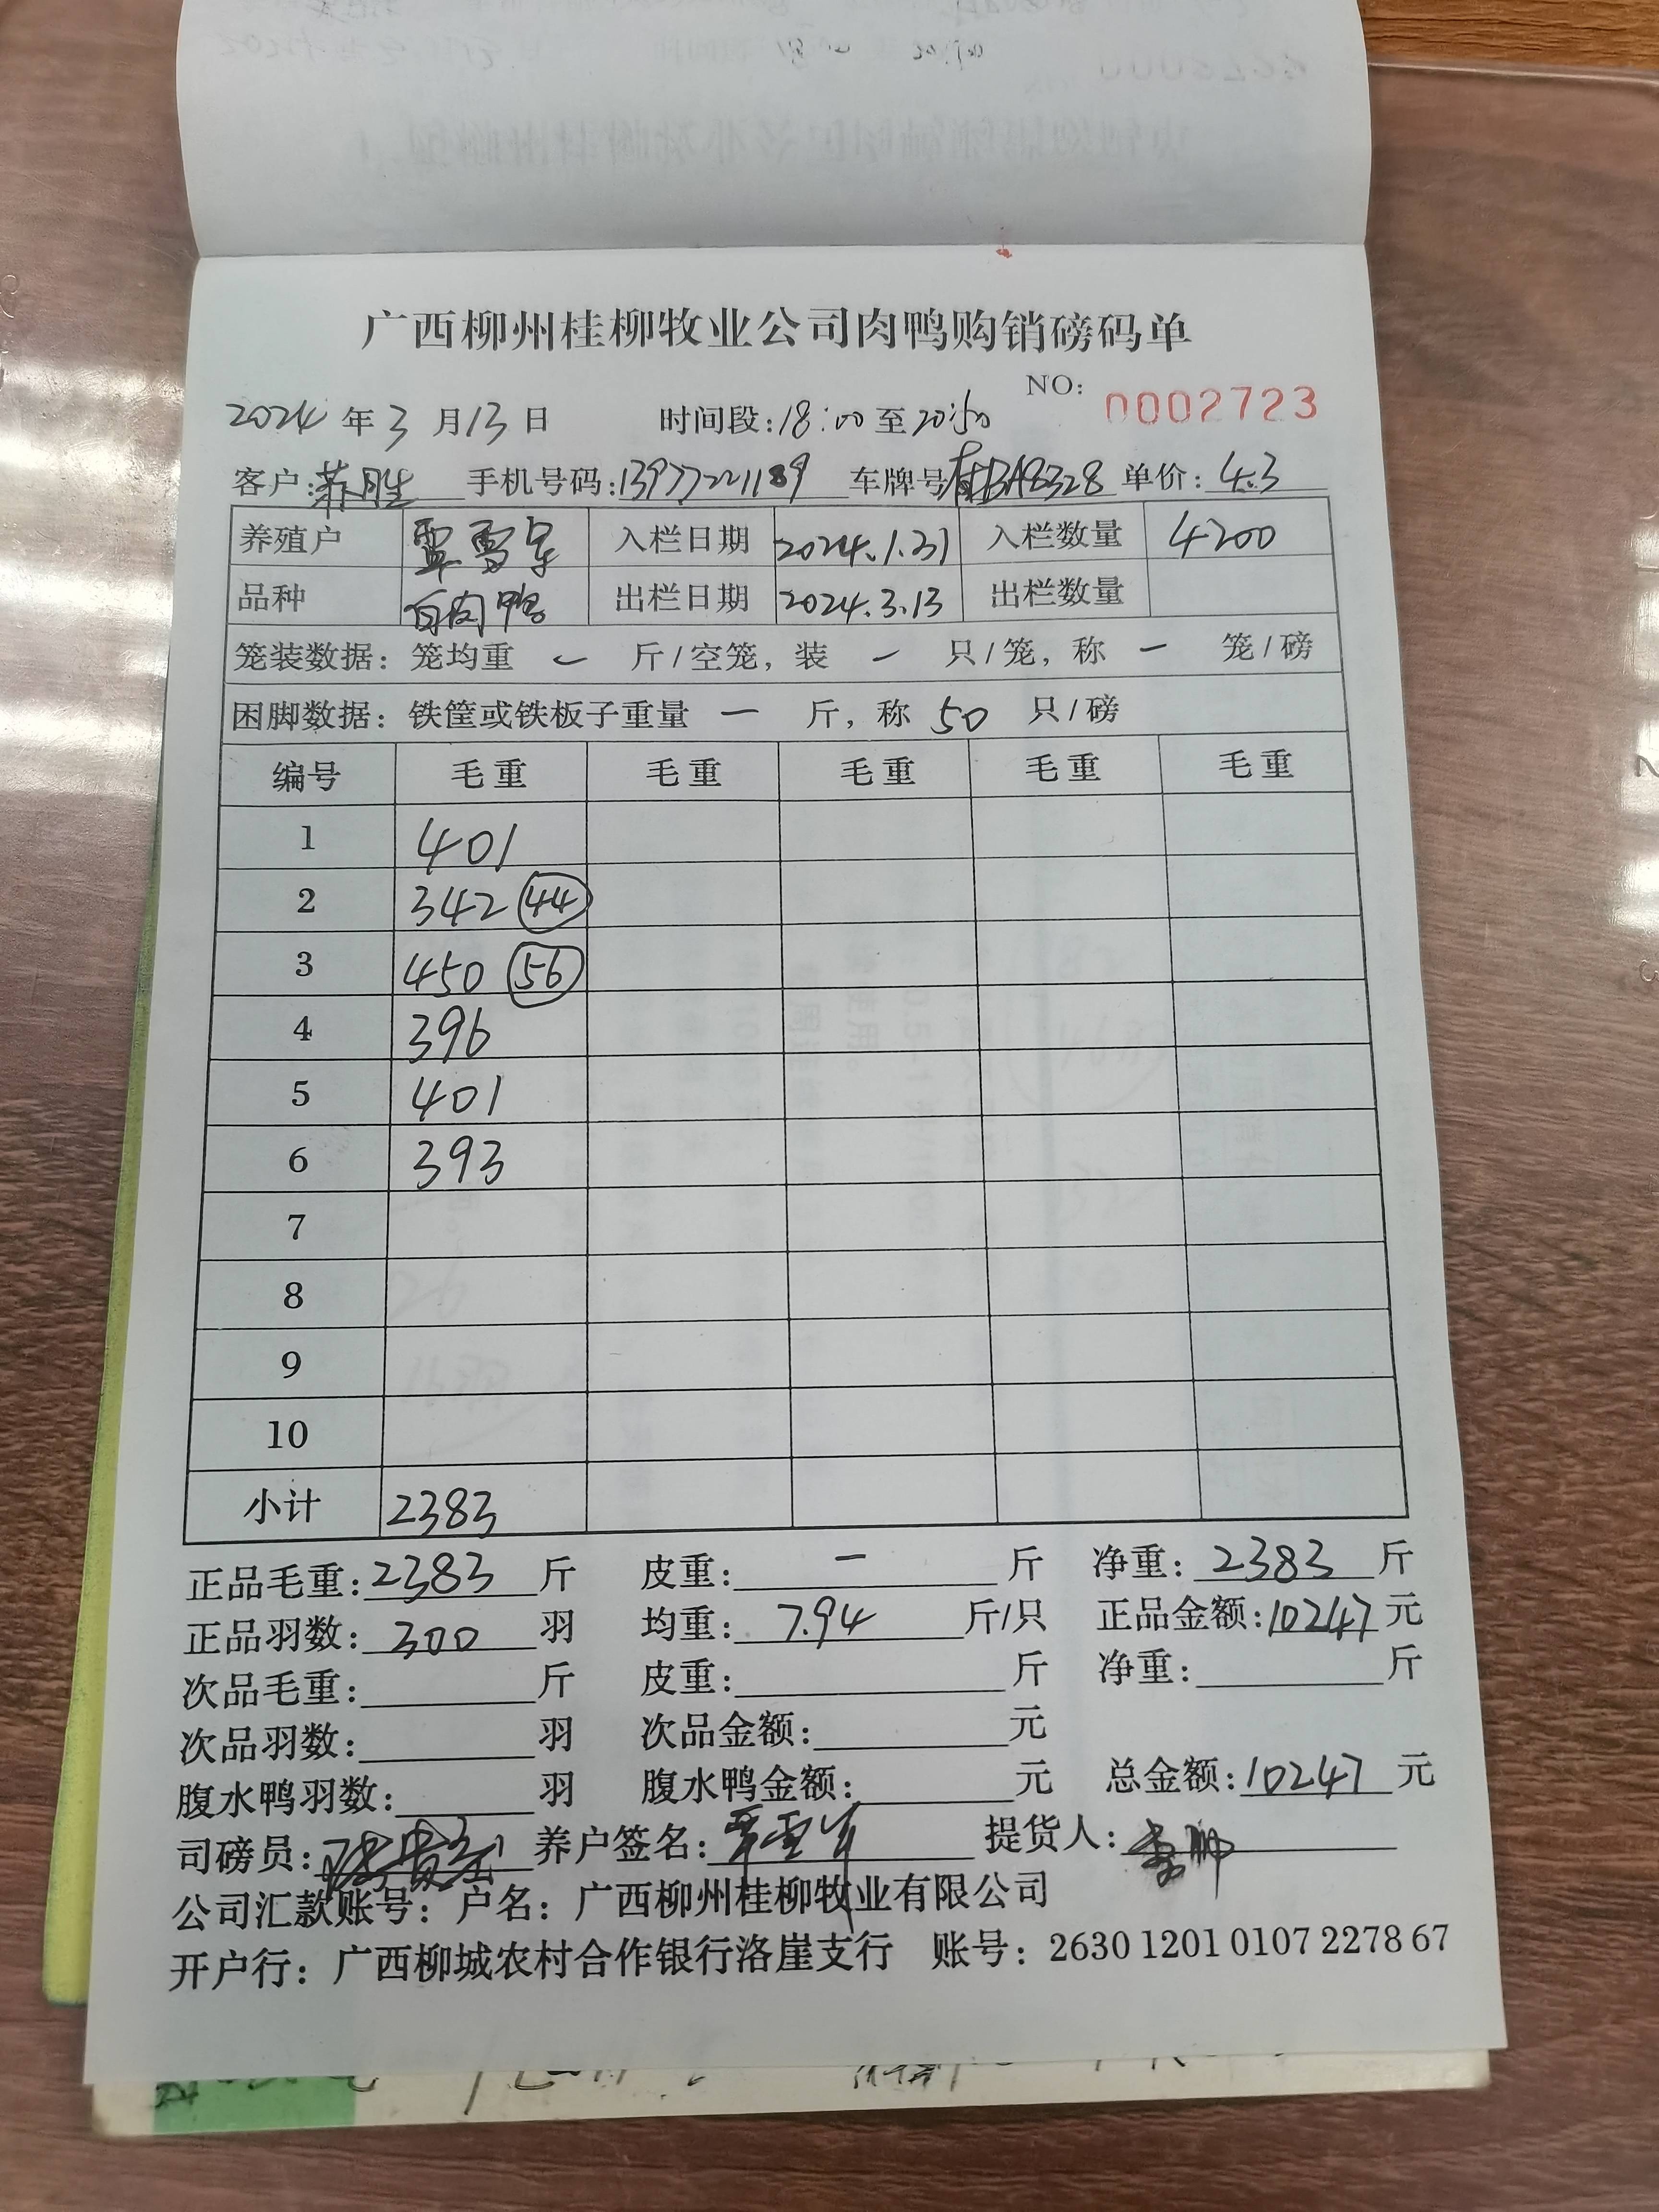 广西柳州桂柳牧业公司肉鸭购销磅码单
NO: 0002723
2024 年 3 月 13 日 时间段: 18:00 至 20:50
客户: 手机号码: 13977221189 车牌号 桂BA8328 单价: 4.3
养殖户 覃雪军 入栏日期 2024.1.31 入栏数量 4200
品种 白肉鸭 出栏日期 2024.3.13 出栏数量
笼装数据: 笼均重 一 斤/空笼, 装 一 只/笼, 称 一 笼/磅
困脚数据: 铁筐或铁板子重量 一 斤, 称 50 只/磅
编号 毛重 毛重 毛重 毛重 毛重
1 401
2 342 44
3 450 56
4 396
5 401
6 393
7
8
9
10
小计 2383
正品毛重: 2383 斤 皮重: 一 斤 净重: 2383 斤
正品羽数: 300 羽 均重: 7.94 斤/只 正品金额: 10247 元
次品毛重: 斤 皮重: 斤 净重: 斤
次品羽数: 羽 次品金额: 元
腹水鸭羽数: 羽 腹水鸭金额: 元 总金额: 10247 元
司磅员: 养户签名: 覃雪军 提货人:
公司汇款账号: 户名: 广西柳州桂柳牧业有限公司
开户行: 广西柳城农村合作银行洛崖支行 账号: 2630 1201 0107 2278 67